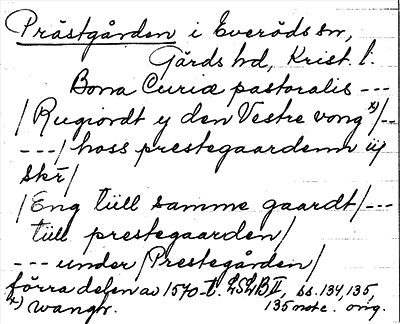 Prästgården i Everöds sn,
Gärds hd, Krist. l.
Bona Curiæ pastoralis ---
/Rugiordt y den Vestre vong x)/--
---/hoss prestegaardenn iij
skr/
/Eng tüll samme gaardt/---
tüll prestegaarden/
--- under/Prestegården/
förra delen av 1570-t. LSLB II, ss. 134, 135,
x) wangr. 135 note. orig.